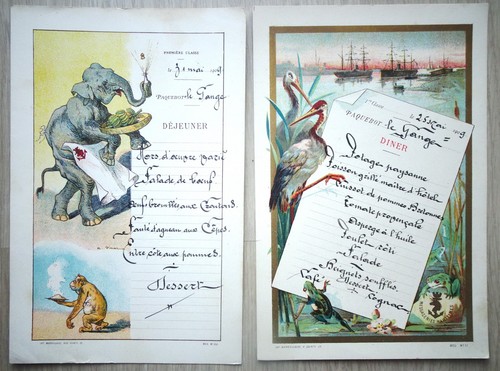 PREMIÈRE CLASSE
le 31 mai 1909
PAQUEBOT le Gange
DÉJEUNER
Hors d'œuvre varié
Salade de bœuf
Œufs brouillés aux Croutons
Sauté d'agneau aux Cèpes
Entrecôte aux pommes
Dessert
1re Classe le 25 Mai 1909
PAQUEBOT le Gange
DINER
Potage paysanne
Poisson grillé maitre d'hôtel
de pommes Bretonne
Tomate provençale
Asperge à l'huile
Poulet rôti
Salade
Beignets soufflés
Dessert
Café Cognac